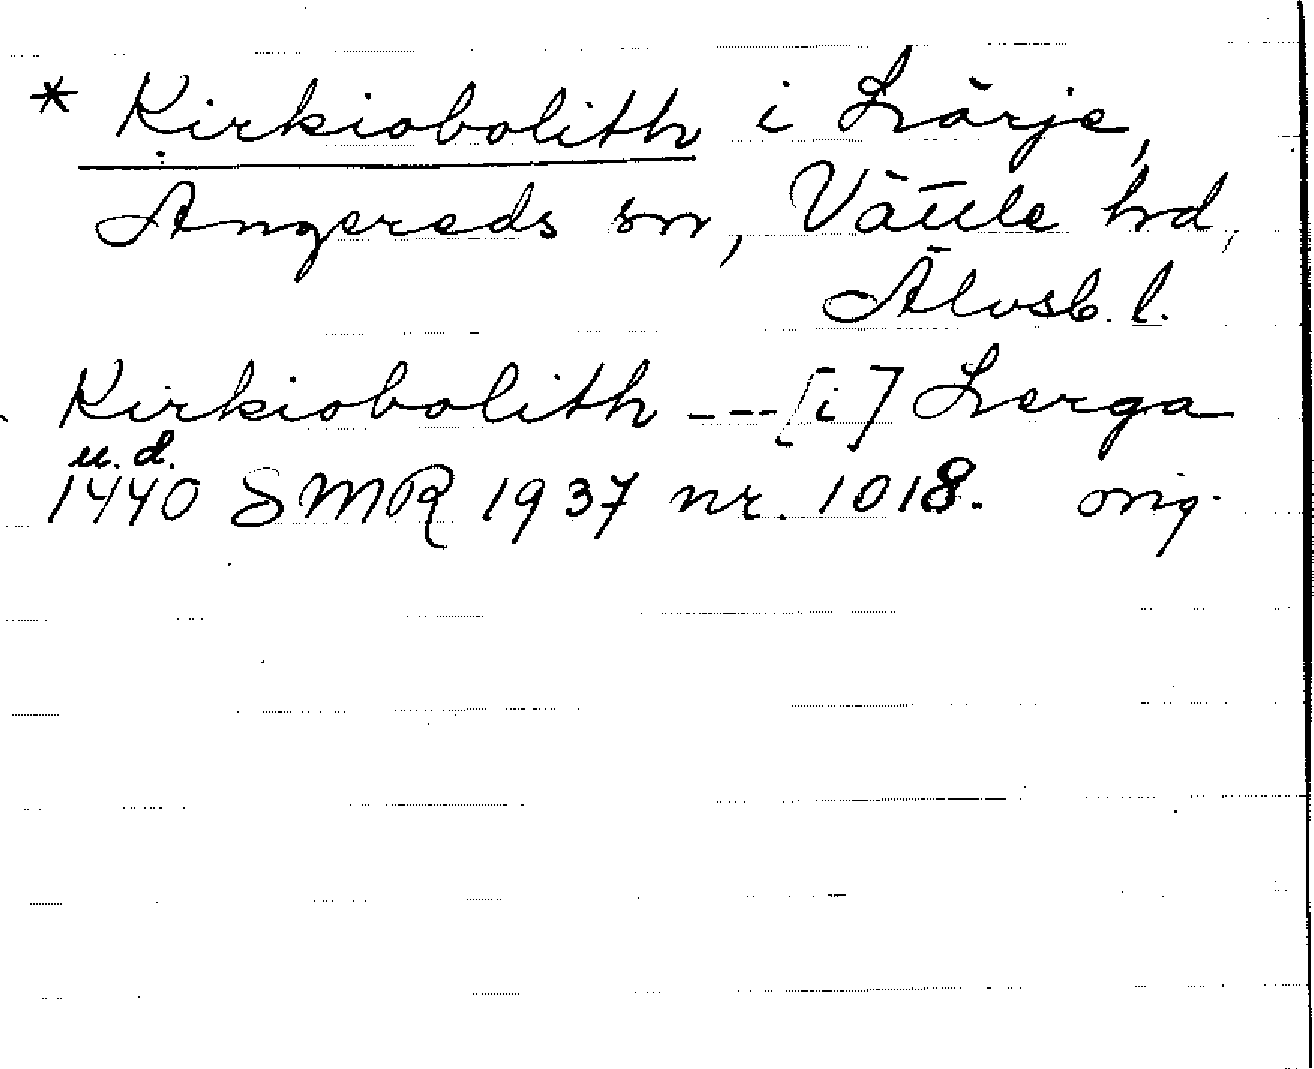 * Kirkiobolith i Lärje,
Angereds sn, Vättle hd,
Älvsb. l.
Kirkiobolith --- [i] Lerga
u. d.
1440 SMR 1937 nr. 1018. orig.